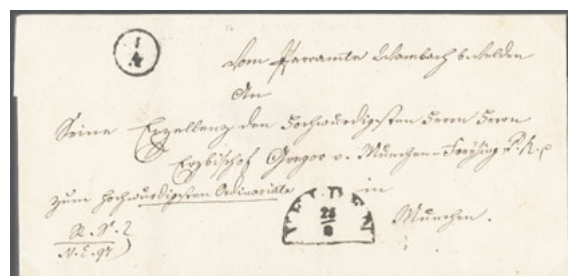 1
4
Vom Pfarramte Wambach b. Velden
An
Seine Exzellenz den Hochwürdigsten Herrn Herrn
Erzbischof Gregor v. München-Freysing
zum Hochwürdigsten Ordinariate in
VELDEN
28
8
München.
R. S. 2